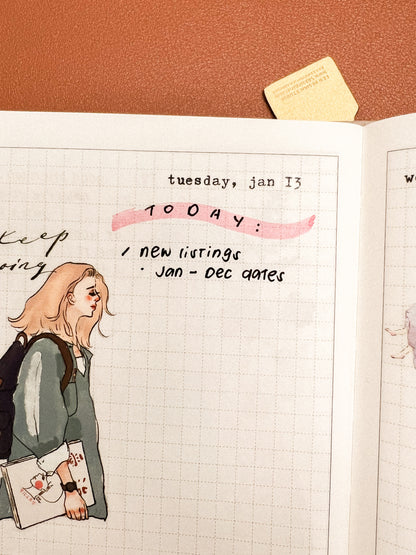 tuesday, jan 13
TODAY:
keep
going
/ new listings
· Jan - Dec dates